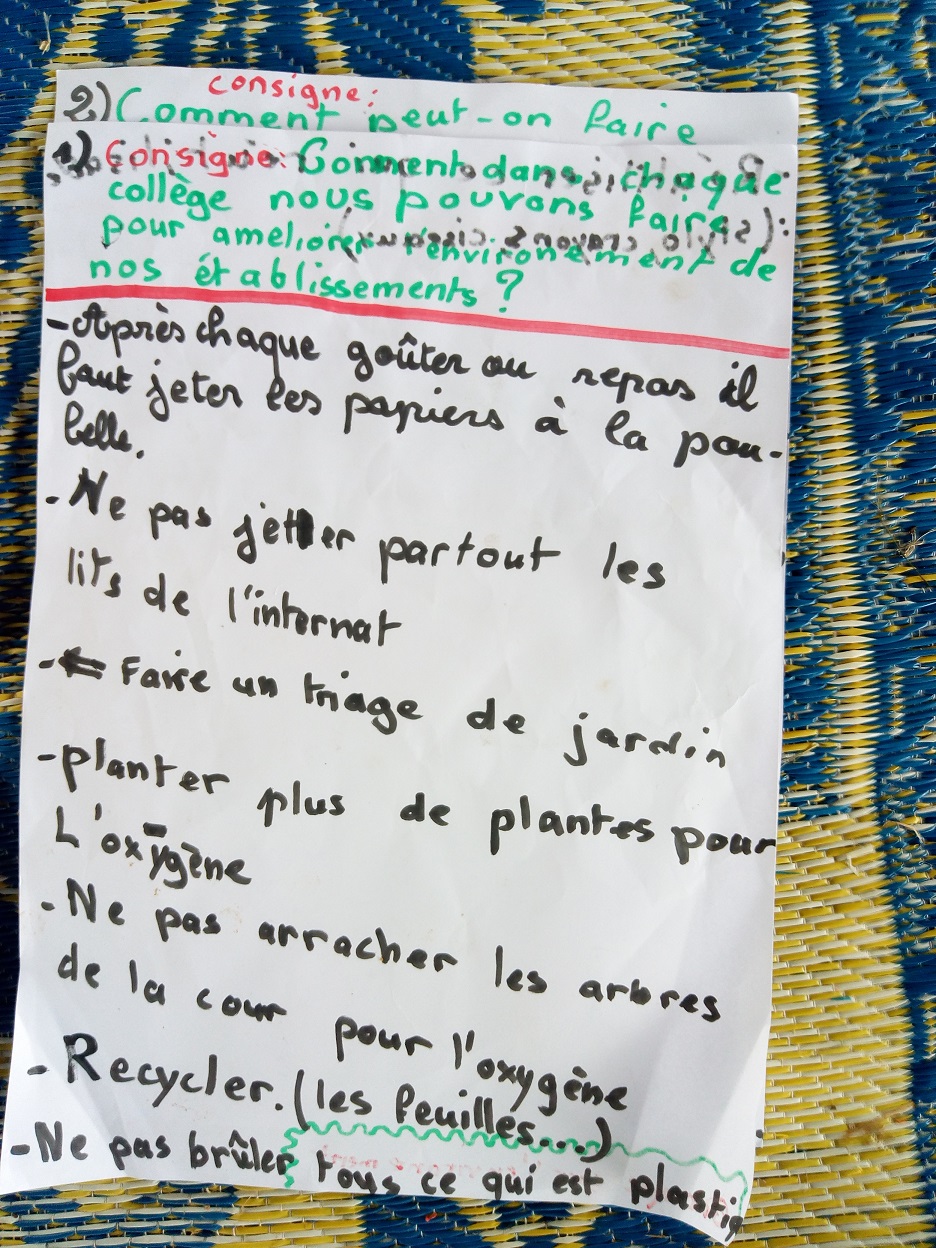 consigne:
2) Comment peut-on faire
1) Consigne: Comment dans chaque
collège nous pouvons faire
pour ameliorer l'environement de
nos établissements ?
- Après chaque goûter ou repas il
faut jeter les papiers à la pou-
belle.
- Ne pas jetter partout les
lits de l'internat
- Faire un triage de jardin
- planter plus de plantes pour
L'oxygène
- Ne pas arracher les arbres
de la cour pour l'oxygène
- Recycler. (les feuilles....)
- Ne pas brûler tous ce qui est plastiq